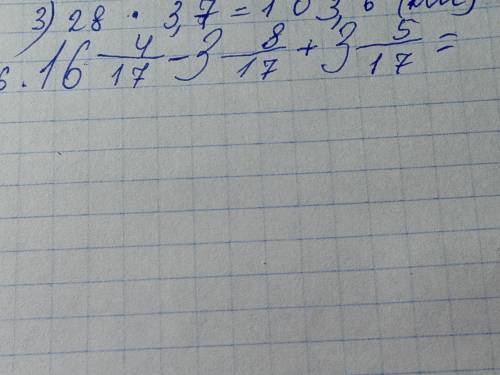 3) 28 · 3,7 = 103,6
6. 16 4/17 - 3 8/17 + 3 5/17 =